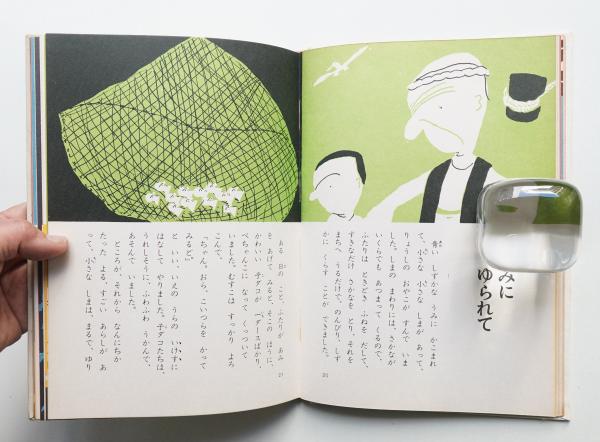 みに
ゆられて
青い しずかな うみに かこまれ
て、小さな 小さな しまが あって、
りょうしの おやこが すんで いま
した。しまの まわりには、さかなが
いくらでも あつまって くるので、
ふたりは ときどき ふねを だして、
すきなだけ さかなを とり、それを
まちへ うるだけで、のんびり、しず
かに くらす ことが できました。
ある 日の こと、ふたりが あみ
を あげて みると、そこの ほうに、
かわいい 子ダコが 一ダースばかり、
べちゃんこに なって くっついて
いました。むすこは すっかり よろ
こんで、
「ちゃん。おら、こいつらを かって
みるど。」
と いい、いえの うらの いけすに
はなして やりました。子ダコたちは、
うれしそうに、ふわふわ うかんで、
あそんで いました。
ところが、それから なんにちか
たった よる すごい あらしが あ
って、小さな しまは、まるで、ゆり